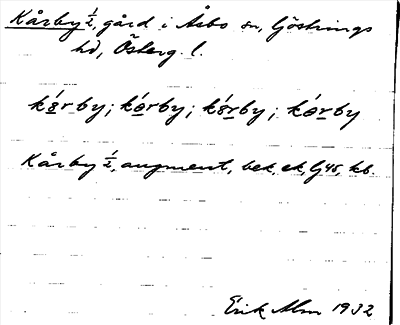 Kårby ½, gård i Åsbo sn, Göstrings
hd, Österg. l.
kórby; kórby; kórby; kórby
Kårby ½, augment, bek, ek, Gj45, kb.
Erik Alm 1932